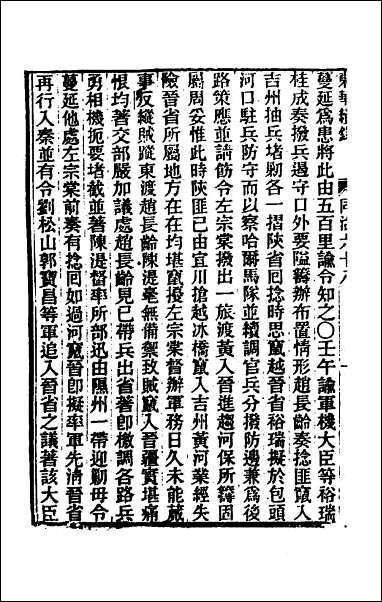 東華續錄 同治六十八
蔓延爲患將此由五百里諭令知之〇壬午諭軍機大臣等裕瑞
桂成奏撥兵遏守口外要隘籌辦布置情形趙長齡奏捻匪竄入
吉州抽兵堵勦各一摺陝省回捻時思竄越晉省裕瑞擬於包頭
河口駐兵防守而以察哈爾馬隊並續調官兵分撥防邊兼爲後
路策應並請飭令左宗棠撥出一旅渡黃入晉進趨河保所籌固
屬周妥惟此時陝匪已由宜川搶越冰橋竄入吉州黃河業經失
險晉省所屬地方在在均堪竄擾左宗棠督辦軍務日久未能蕆
事反縱賊蹤東渡趙長齡陳湜毫無備禦致賊竄入晉疆實堪痛
恨均著交部嚴加議處趙長齡見已帶兵出省著卽檄調各路兵
勇相機扼要堵截並著陳湜督率所部迅由隰州一帶迎勦毋令
蔓延他處左宗棠前奏有捻回如過河竄晉卽擬率軍先清晉省
再行入秦並有令劉松山郭寶昌等軍追入晉省之議著該大臣